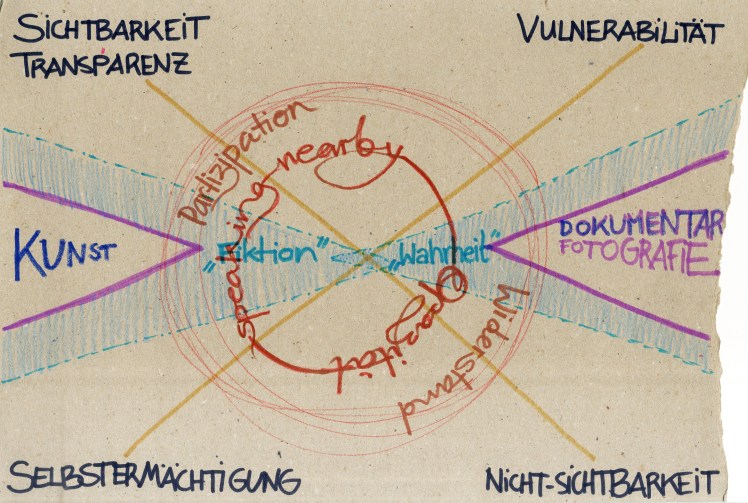 SICHTBARKEIT
TRANSPARENZ
VULNERABILITÄT
Partizipation
speaking nearby
KUNST
„Fiktion"
„Wahrheit"
DOKUMENTAR
FOTOGRAFIE
Opazität
Widerstand
SELBSTERMÄCHTIGUNG
NICHT-SICHTBARKEIT